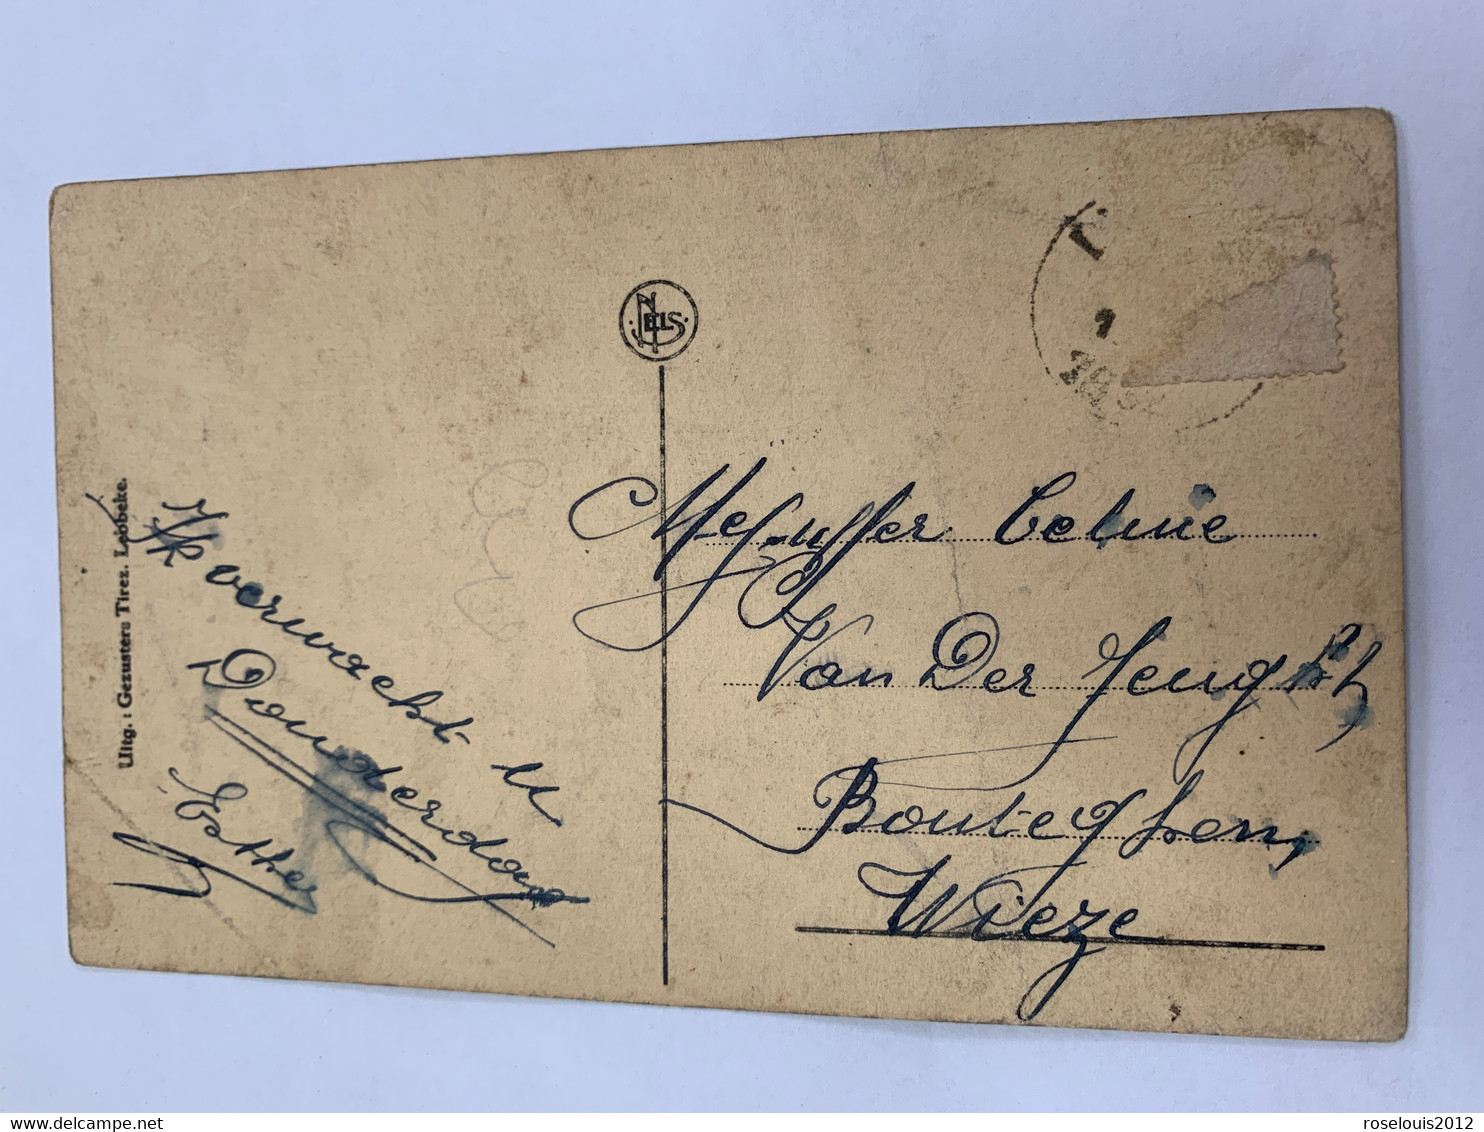 Uitg.: Gezusters Tirez. Lebbeke.
Ik verwacht U
Donderdag
Esther
NELS
1
Mej-uffer Celine
Van Der Jeught,
Bouteghem,
Wieze
delcampe.net
roselouis2012